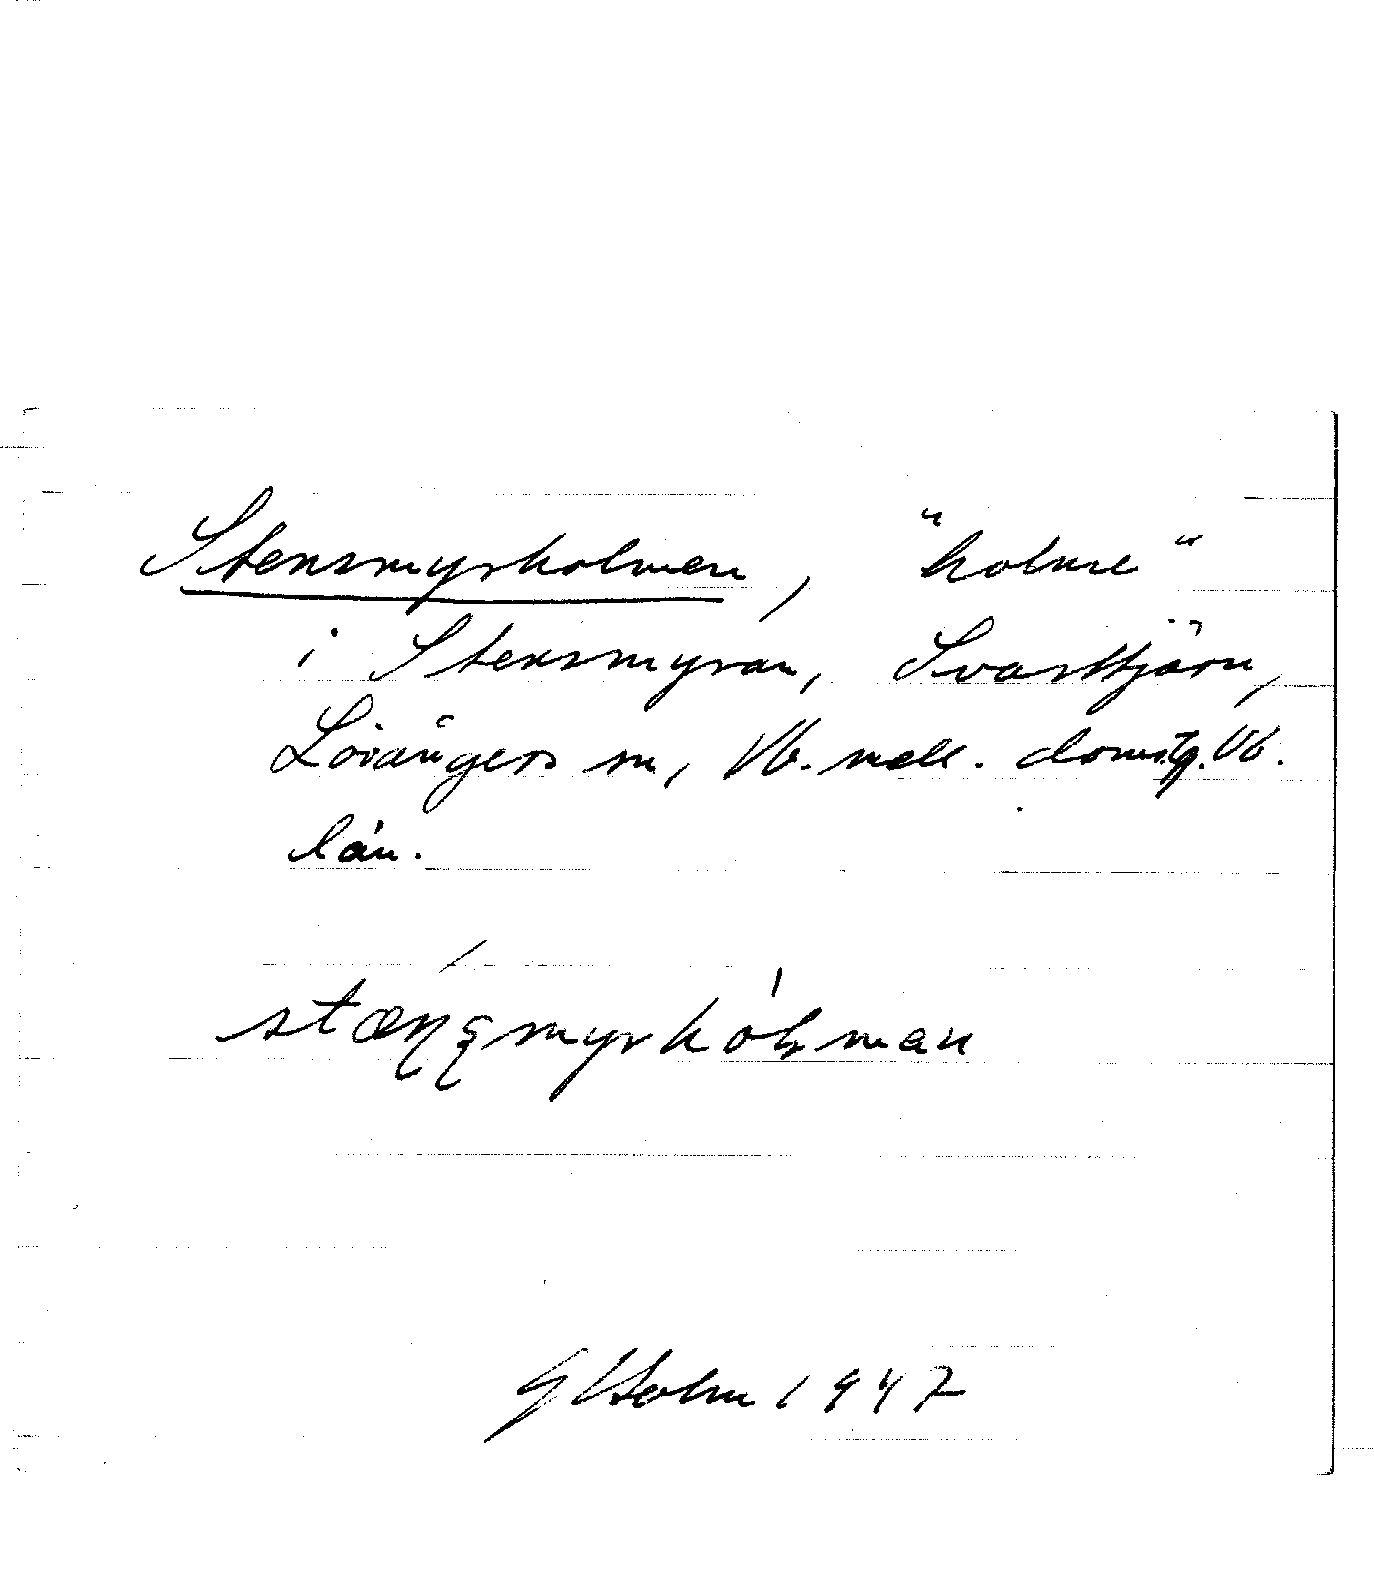 Stensmyrholmen, "holme"
i Stensmyran, Svarttjärn,
Lövångers sn, Vb. mell. domsg. Vb.
län.
G Holm 1947